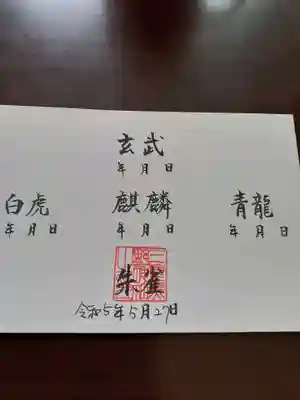 玄武
年月日
白虎 麒麟 青龍
年月日 年月日 年月日
朱雀
令和5年5月27日